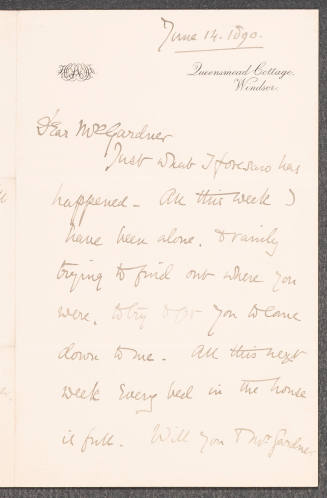 June 14. 1890.
Queensmead Cottage.
Windsor.
Dear Mrs Gardner
Just what I foresaw has
happened - All this week I
have been alone, & vainly
trying to find out where you
were, to try & get you to come
down to me. All this next
week every bed in the house
is full. Will you & Mr Gardner